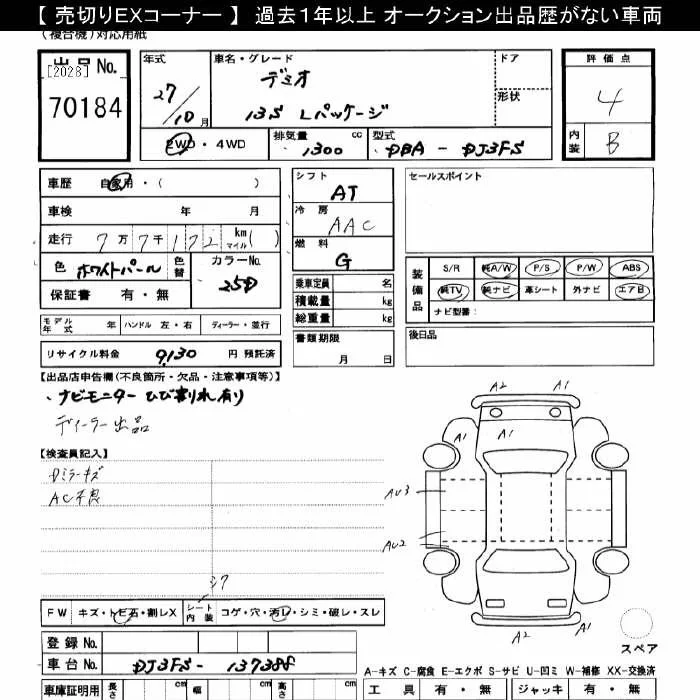 【 売切りEXコーナー 】 過去1年以上 オークション出品歴がない車両
(複合機)対応用紙
出品No.
[2028]
70184
年式
27/10月
車名・グレード
デミオ
13S Lパッケージ
ドア
形状
評価点
4
内装
B
2WD・4WD
排気量 1300 cc
型式 DBA - DJ3FS
車歴 自家用・( )
車検 年 月
走行 7万7千172 km マイル ( )
色 ホワイトパール 色替 カラーNo. 25D
保証書 有・無
シフト AT
冷房 AAC
燃料 G
乗車定員 名
積載量 kg
総重量 kg
書類期限
月 日
セールスポイント
装備品
S/R 純A/W P/S P/W ABS
純TV 純ナビ 革シート 外ナビ エアB
ナビ型番:
後日品
モデル年式 年 ハンドル 左・右 ディーラー・並行
リサイクル料金 9,130 円 預託済
【出品店申告欄(不良箇所・欠品・注意事項等)】
、ナビモニター ひび割れ有り
ディーラー出品
【検査員記入】
Dミラーキズ
AC不良
シワ
FW キズ・トビ石・割レX シート内装 コゲ・穴・汚レ・シミ・破レ・スレ
登録No.
車台No. DJ3FS - 137388
車庫証明用 長さ cm 幅 cm 高さ cm
A2 A1
A1 A1
AU3
AU2
A1
A2
スペア
A-キズ C-腐食 E-エクボ S-サビ U-凹ミ W-補修 XX-交換済
工具 有・無 ジャッキ 有・無